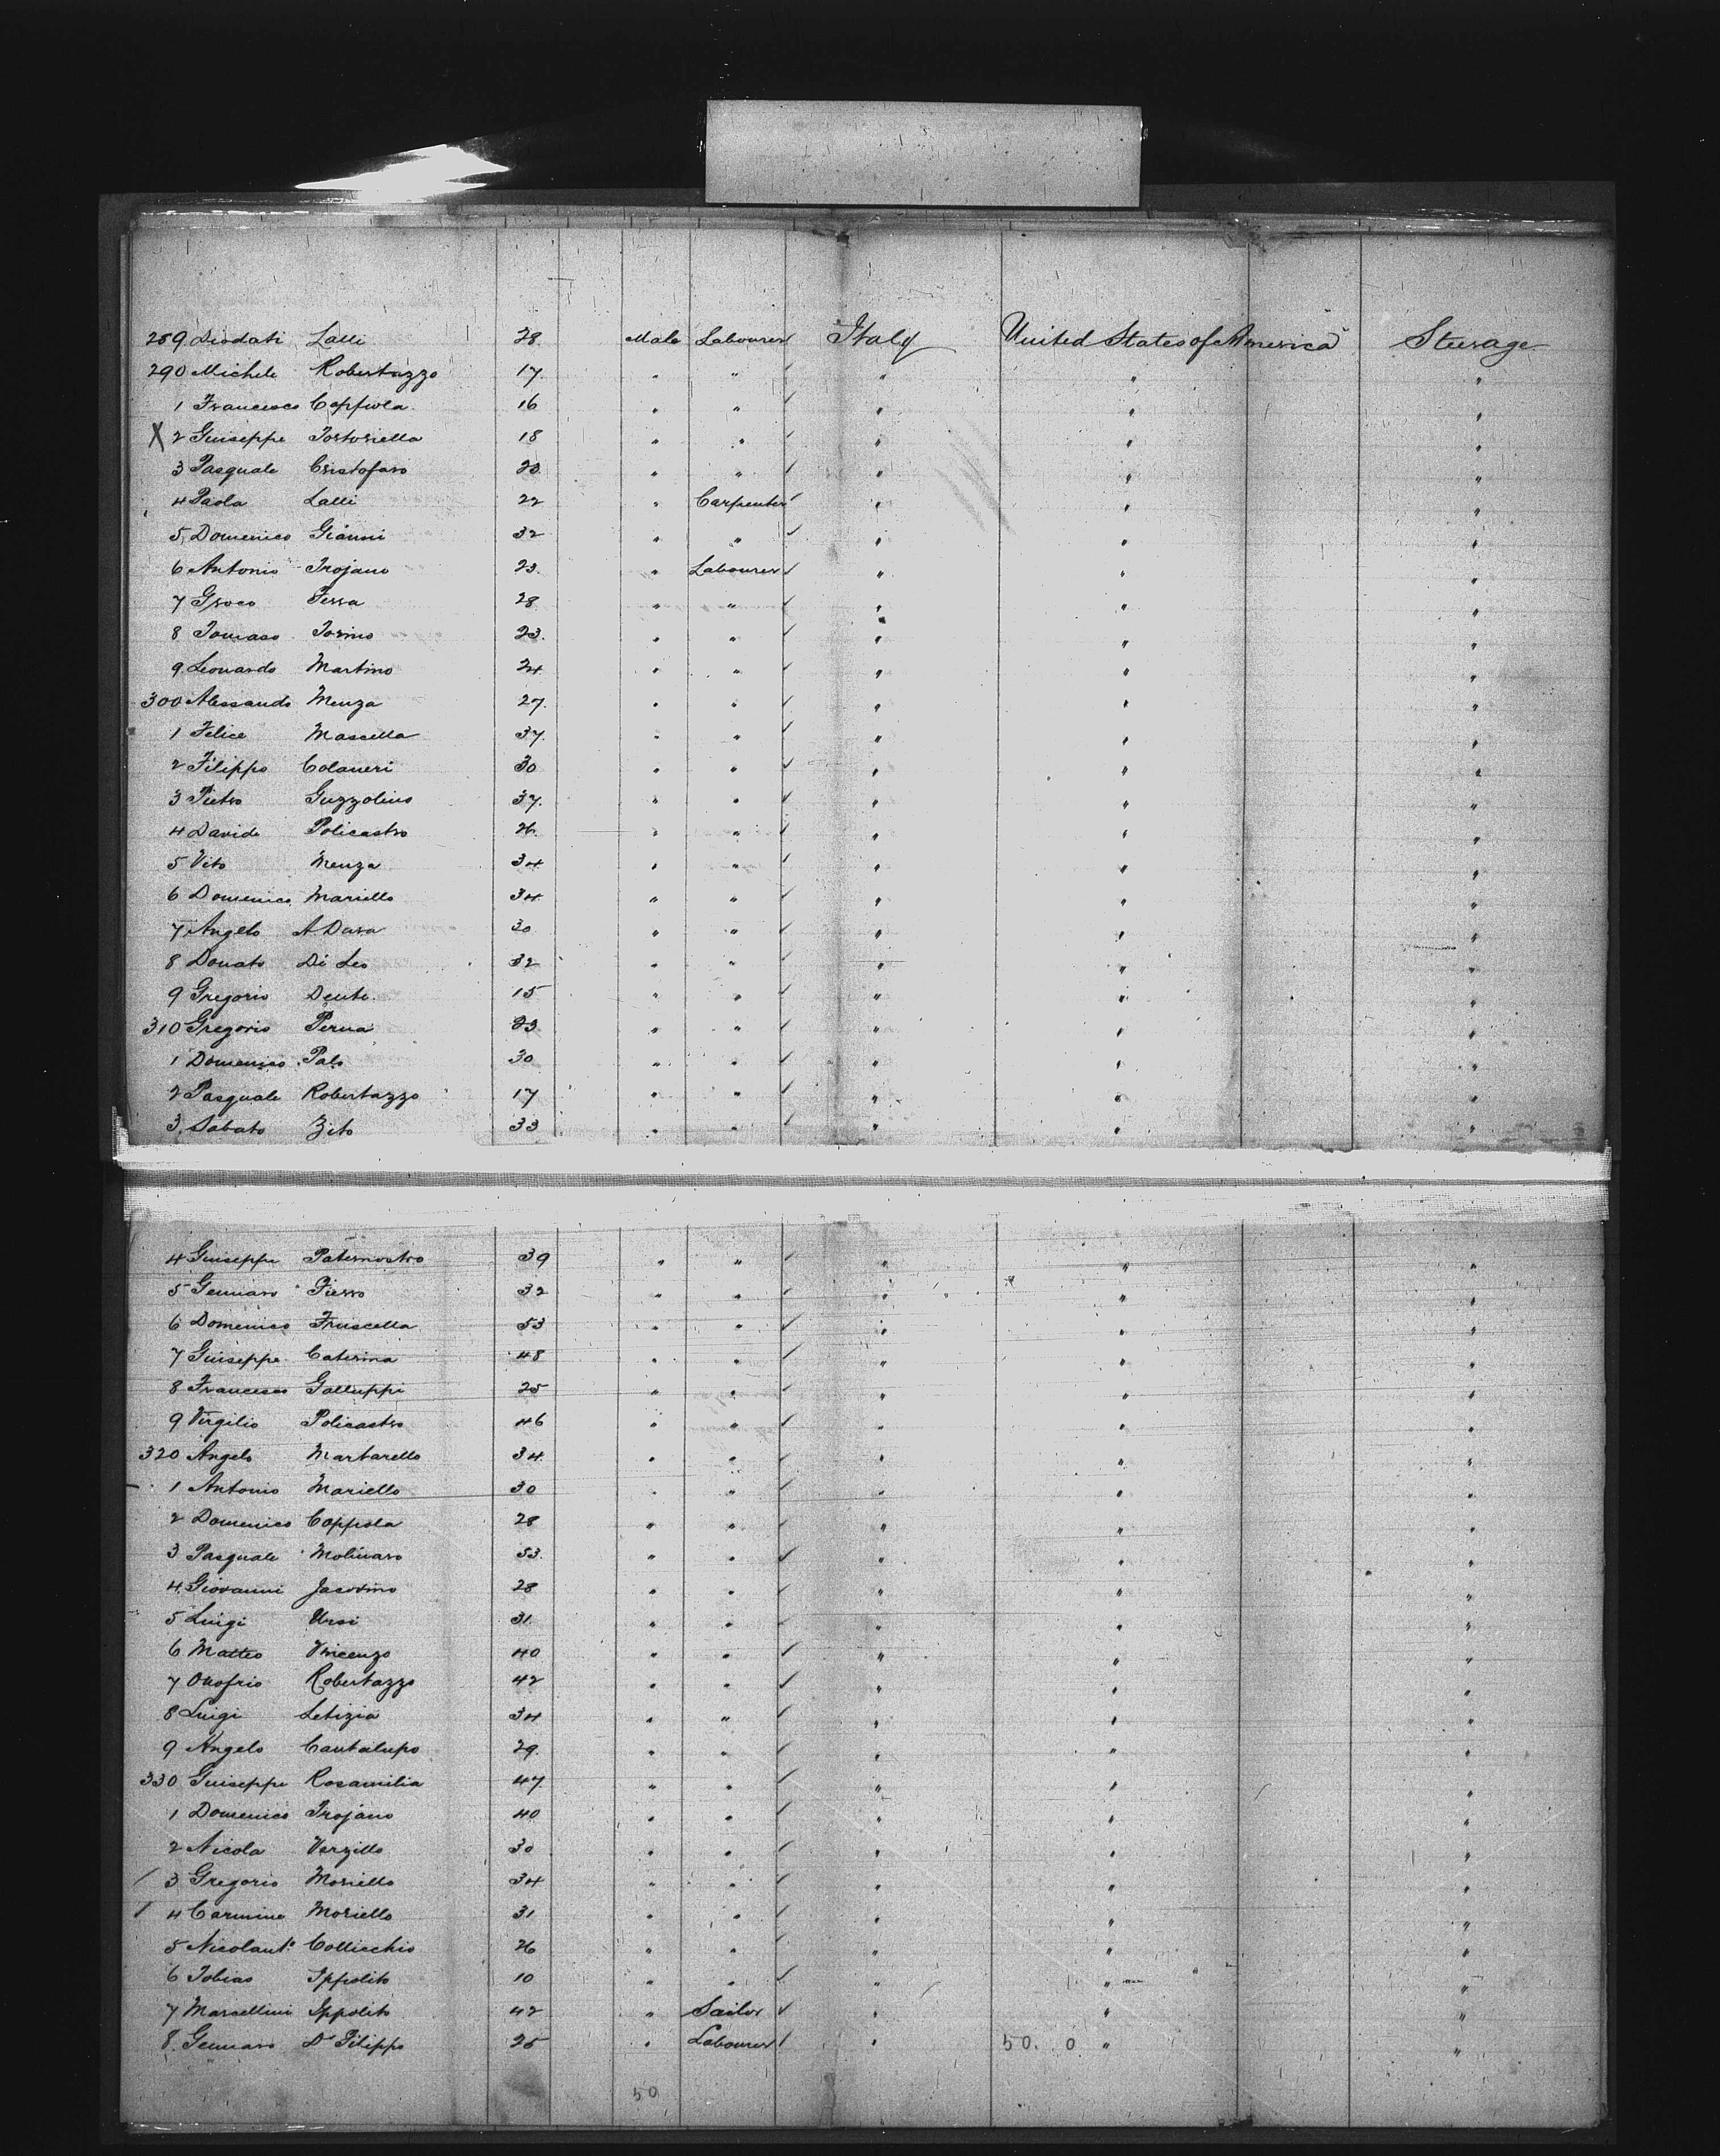 289 Diodati Lalli 28 Male Labourer Italy United States of America Steerage
290 Michele Robertazzo 17. " " " " "
1 Francesco Coppiola 16 " " " " "
X 2 Guiseppe Tortoriella 18 " " " " "
3 Pasquale Cristofaro 20. " " " " "
4 Paola Lalli 22 " Carpenter " " "
5, Domenico Gianni 32 " " " " "
6 Antonio Trojano 23. " Labourer " " "
7 Groco Terra 28 " " " " "
8 Tomaso Torino 23. " " " " "
9. Leonardo Martino 24. " " " " "
300 Alessando Menza 27. " " " " "
1 Felice Mascella 37. " " " " "
2 Filippo Colaneri 30 " " " " "
3 Pietro Guzzolino 37. " " " " "
4 Davide Policastro 26. " " " " "
5 Vito Menza 34 " " " " "
6 Domenico Mariello 34. " " " " "
7 Angelo A Dara 30 " " " " "
8 Donato Di Leo 32 " " " " "
9 Gregorio Dente. 15 " " " " "
310 Gregorio Perna 23 " " " " "
1 Domenico Palo 30 " " " " "
2 Pasquale Robertazzo 17 " " " " "
3. Sabato Zito 33 " " " " "
4 Guiseppe Paternostro 39 " " " " "
5 Gennaro Pierro 32 " " " " "
6 Domenico Fruscella 53 " " " " "
7 Guiseppe Caterina 48 " " " " "
8 Francesco Galluppi 25 " " " " "
9 Virgilio Policastro 46 " " " " "
320 Angelo Martarello 34. " " " " "
1 Antonio Mariello 30 " " " " "
2 Domenico Coppola 28 " " " " "
3 Pasquale Molinaro 53. " " " " "
4. Giovanni Jacovino 28 " " " " "
5 Luigi Ursi 31. " " " " "
6 Matteo Vincenzo 40 " " " " "
7 Onofrio Robertazzo 42 " " " " "
8 Luigi Letizia 34 " " " " "
9 Angelo Cantalupo 29. " " " " "
330 Guiseppe Rosamilia 47. " " " " "
1 Domenico Trojano 40 " " " " "
2 Nicola Verzillo 30 " " " " "
/ 3 Gregorio Moriello 34 " " " " "
/ 4 Carmine Moriello 31 " " " " "
5 Nicolant.º Collicchio 26 " " " " "
6 Tobias Ippolito 10 " " " " "
7 Marcellino Ippolito 42 " Sailor " " "
8. Gennaro Di Filippo 25 " Labourer " 50. 0 " "
50